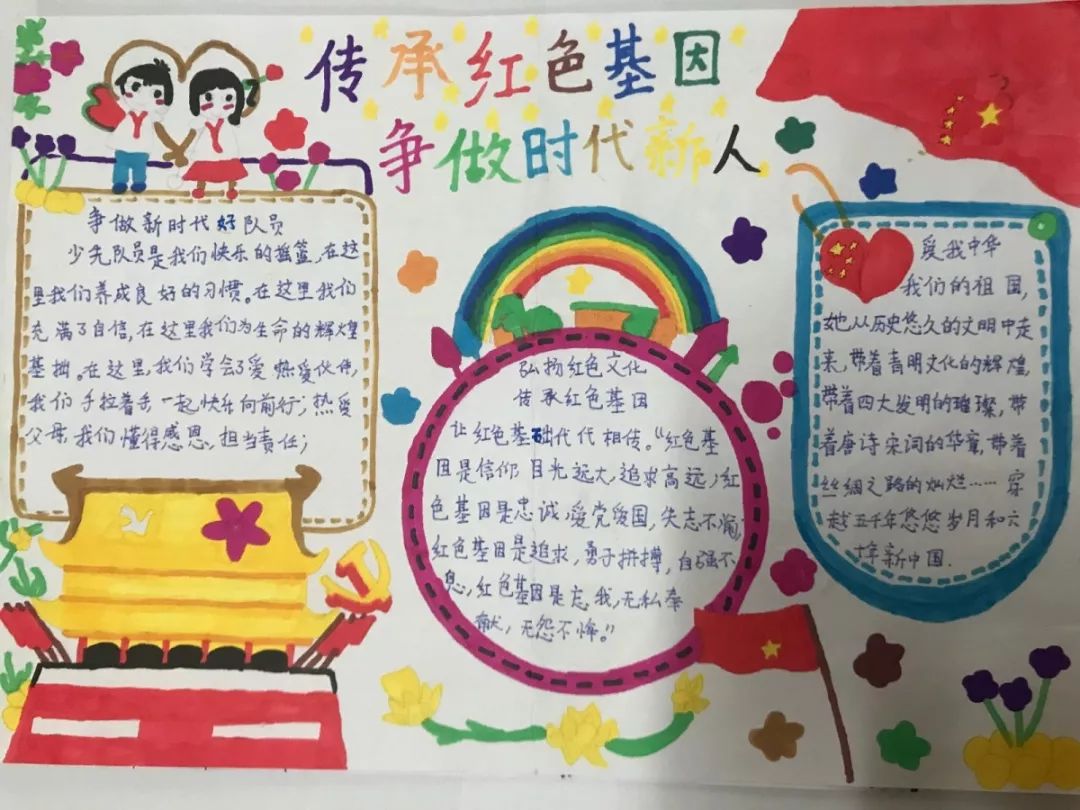 传承红色基因
争做时代新人
争做新时代好队员
少先队员是我们快乐的摇篮,在这
里我们养成良好的习惯。在这里我们
充满了自信,在这里我们为生命的辉煌
基拙。在这里,我们学会了爱,热爱伙伴,
我们手拉着手一起快乐向前行;热爱
父母,我们懂得感恩,担当责任;
弘扬红色文化
传承红色基因
让红色基础代代相传。“红色基
因是信仰,目光远大,追求高远;红
色基因是忠诚,爱党爱国,矢志不渝;
红色基因是追求,勇于拼搏,自强不
息,红色基因是忘我,无私奉
献,无怨不悔。”
爱我中华
我们的祖国,
她从历史悠久的文明中走
来,带着青明文化的辉煌,
带着四大发明的璀璨,带
着唐诗宋词的华章,带着
丝绸之路的灿烂……穿
越五千年悠悠岁月和六
十年新中国.